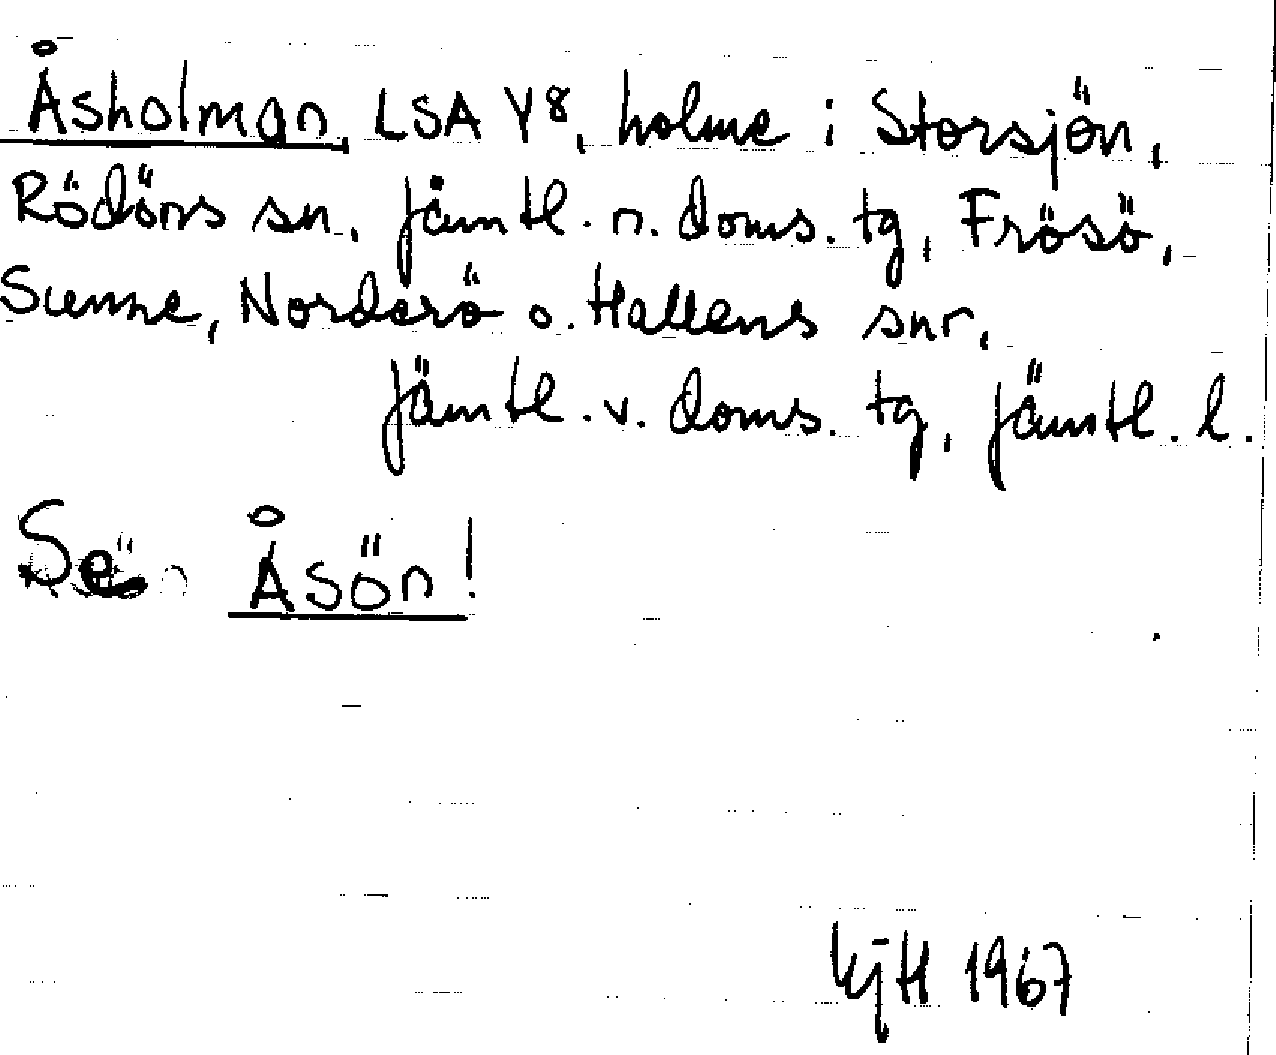 Åsholman, LSA Y8, holme i Storsjön,
Rödöns sn, Jämtl. n. doms. tg, Frösö,
Sunne, Norderö o. Hallens snr,
Jämtl. v. doms. tg, Jämtl. l.
Se Åsön!
KjH 1967